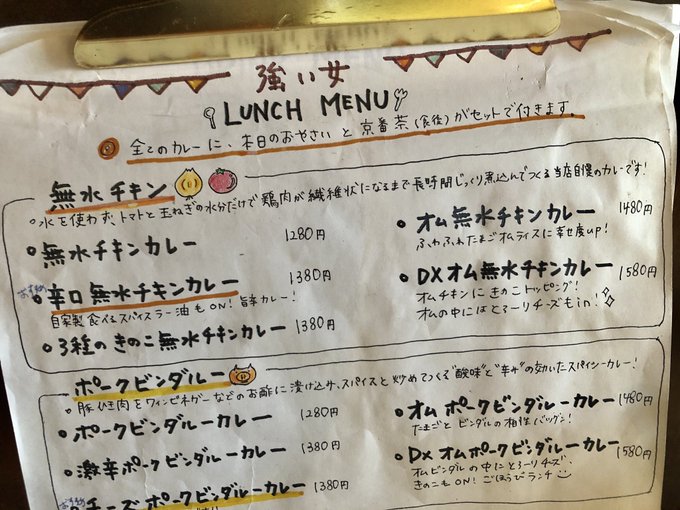 強い女
LUNCH MENU
全てのカレーに、本日のおやさいと京番茶(食後)がセットで付きます。
無水チキン
水を使わず、トマトと玉ねぎの水分だけで鶏肉が繊維状になるまで長時間じっくり煮込んでつくる当店自慢のカレーです!
・無水チキンカレー 1280円
おすすめ
・辛口無水チキンカレー 1380円
自家製食べるスパイスラー油もON!旨辛カレー!
・3種のきのこ無水チキンカレー 1380円
・オム無水チキンカレー 1480円
ふわふわたまごオムライスに幸せ度up!
・DXオム無水チキンカレー 1580円
オムチキンにきのこトッピング!
オムの中にはとろーりチーズもin!
ポークビンダルー
・豚ひき肉をワインビネガーなどのお酢に漬け込み、スパイスと炒めてつくる"酸味"と"辛さ"の効いたスパイシーカレー!
・ポークビンダルーカレー 1280円
・激辛ポークビンダルーカレー 1380円
おすすめ
チーズポークビンダルーカレー 1380円
・オムポークビンダルーカレー 1480円
たまごとビンダルの相性バツグン!
・DXオムポークビンダルーカレー 1580円
オムビンダルの中にとろーりチーズ
きのこもON!ごほうびランチ